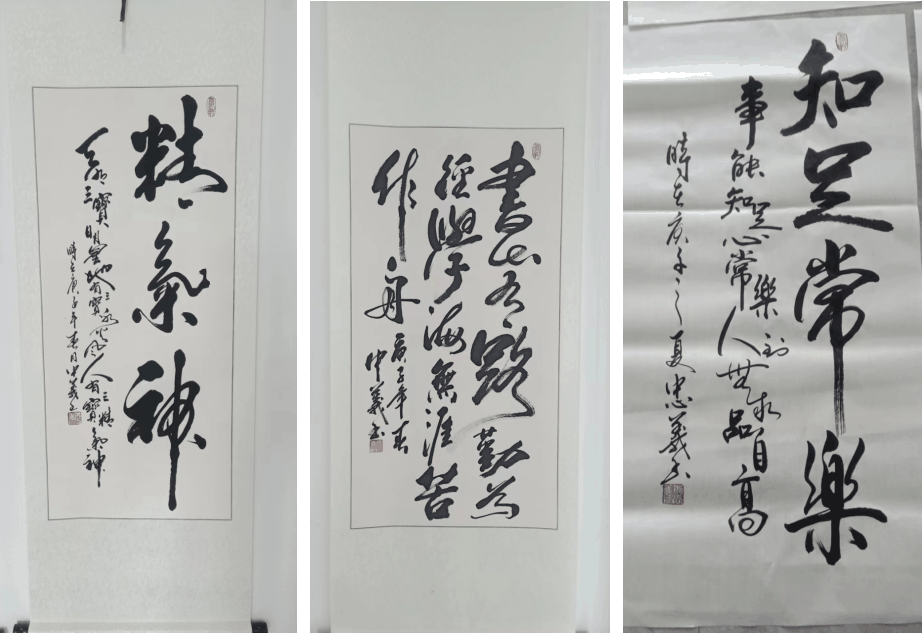 精氣神
天有三寶日月星地有三寶水火風人有三寶精氣神
時在庚子年春月忠義書
書山有路勤為
徑學海無涯苦
作舟
庚子年春
忠義書
知足常樂
事能知足心常樂人到無求品自高
時在庚子之夏忠義書